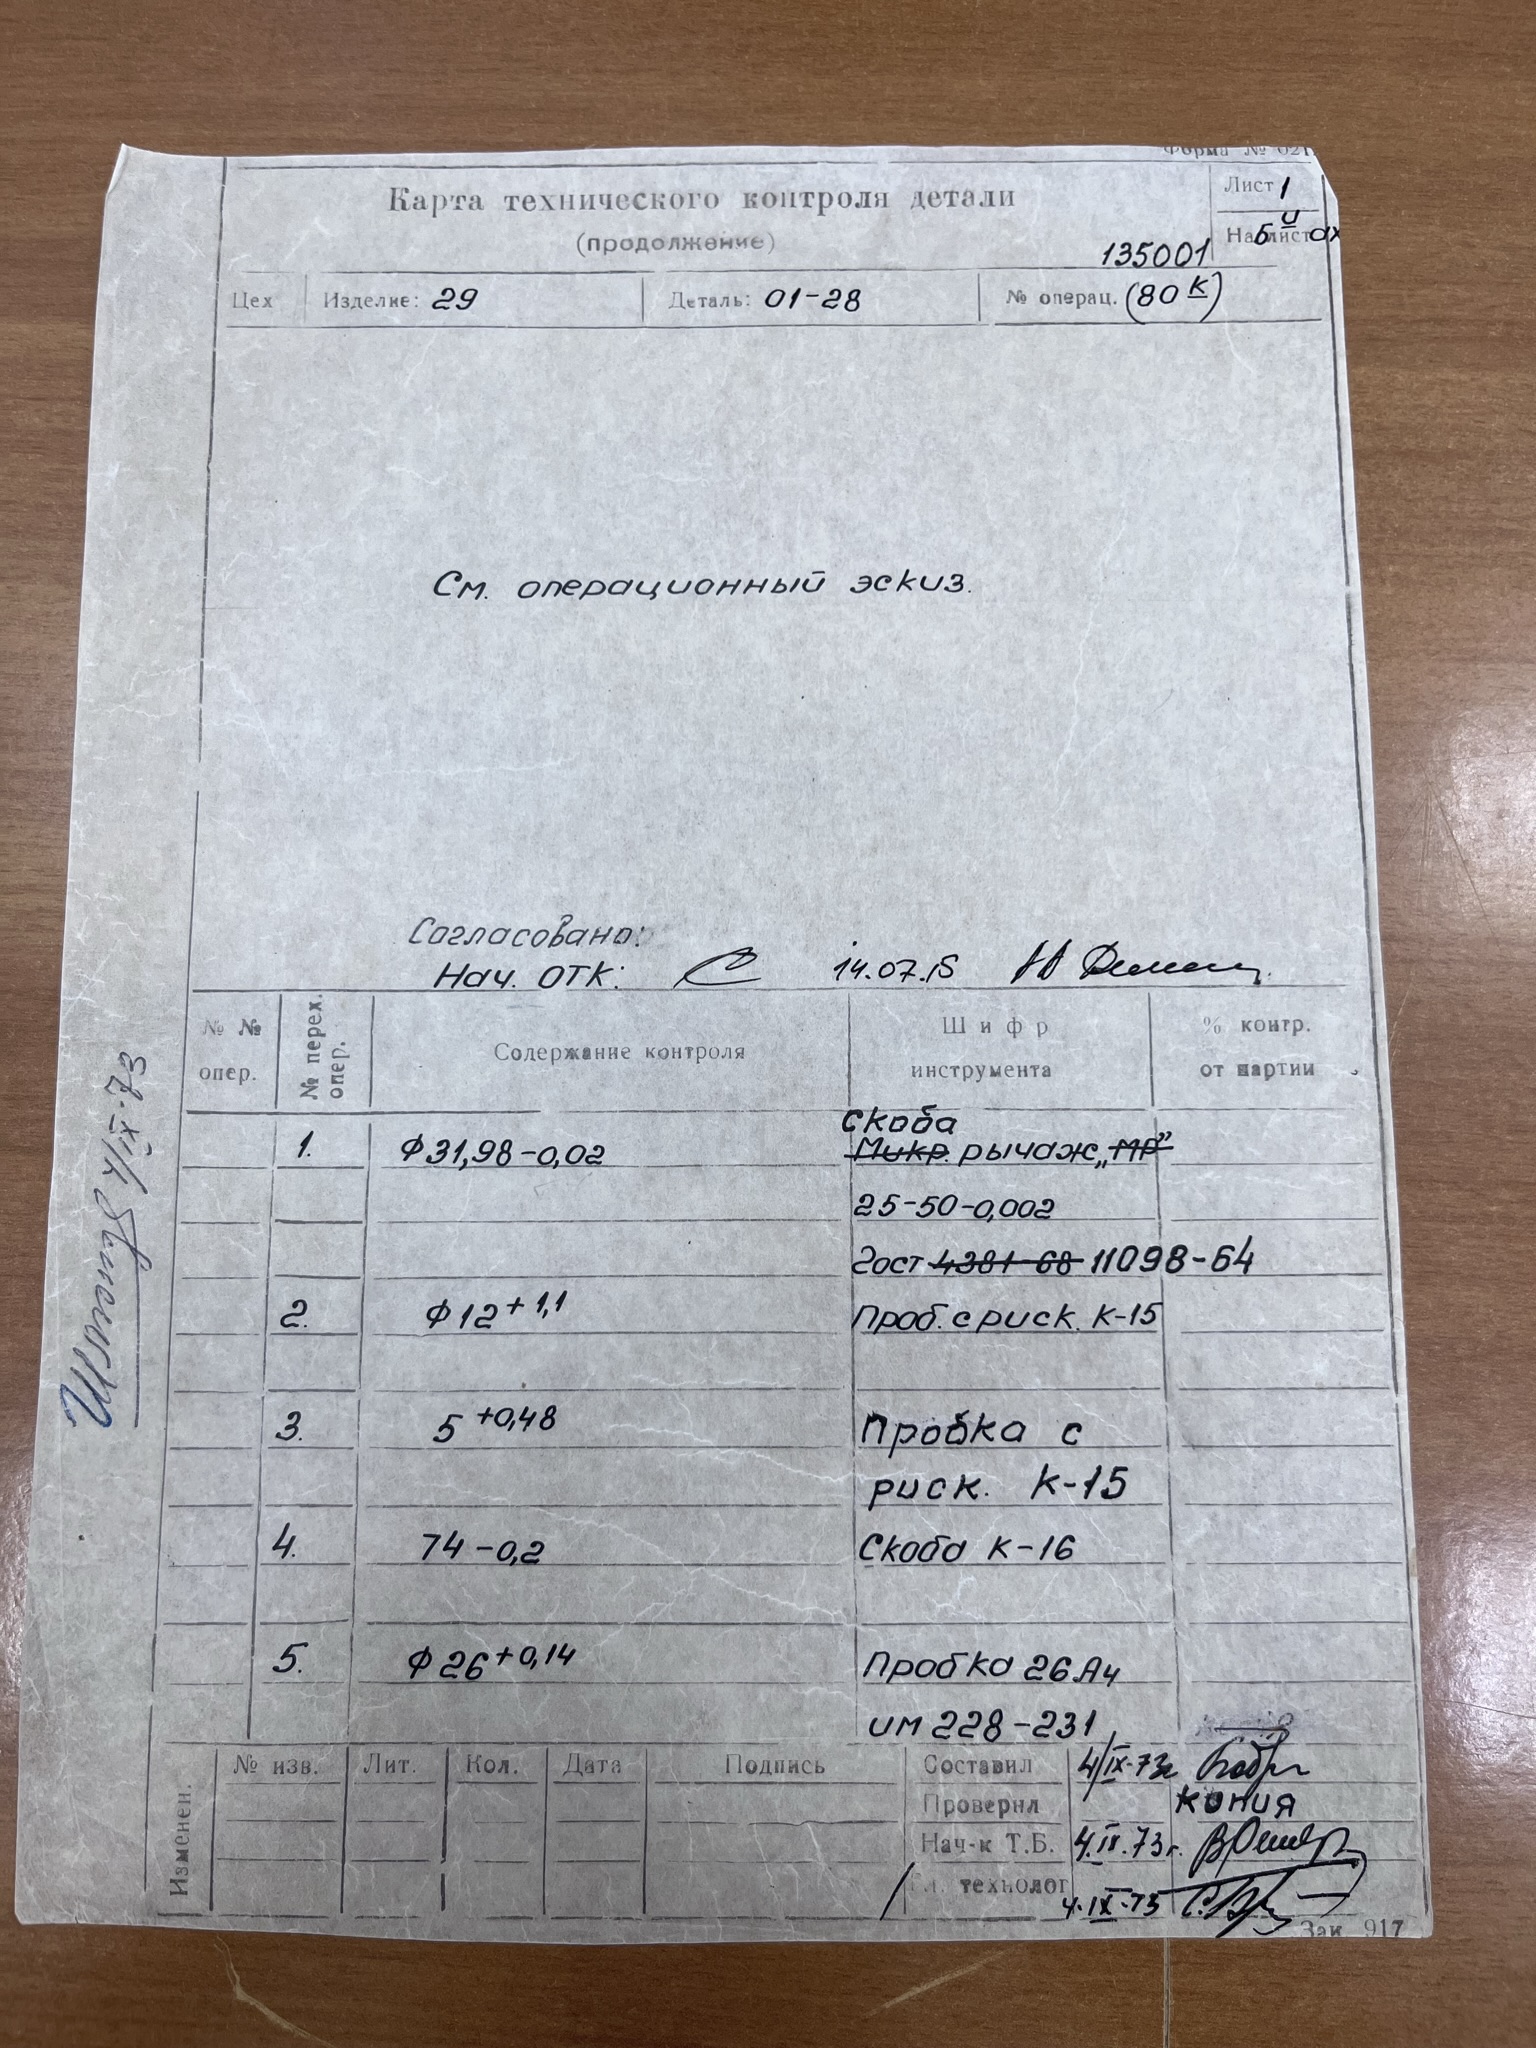 Форма № 021
Карта технического контроля детали
(продолжение)
Лист 1
На 5и листах
135001
Цех Изделие: 29 Деталь: 01-28 № операц. (80 К)
См. операционный эскиз.
Согласовано:
Нач. ОТК: 14.07.75
№ № опер. № перех. опер. Содержание контроля Шифр инструмента % контр. от партии
скоба
1. ф31,98-0,02 Микр. рычаж. „МР”
25-50-0,002
Гост 4381-68 11098-64
2. ф12+1,1 Проб. с риск. К-15
3. 5+0,48 Пробка с
риск. К-15
4. 74-0,2 Скоба К-16
5. ф26+0,14 Пробка 26А4
им 228-231
Изменен. № изв. Лит. Кол. Дата Подпись
Составил 4/IX-73г
Проверил копия
Нач-к Т.Б. 4.IX.73г.
Гл. технолог 4.IX-73
Зак. 917
4/IX-73